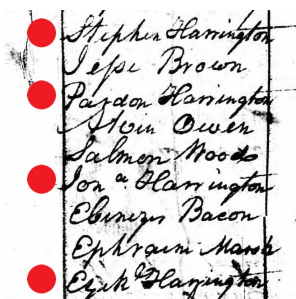 Stephen Harrington
Jesse Brown
Pardon Harrington
Alvin Owen
Salmon Woods
Jon a. Harrington
Ebinezer Bacon
Ephraim Marsh
Ezek Harrington